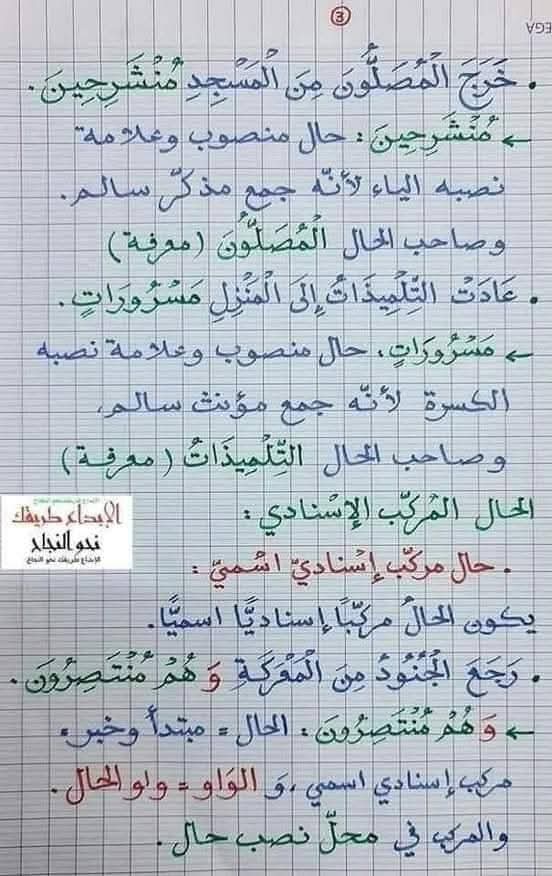 3
EGA
• خَرَجَ الْمُصَلُّونَ مِنَ الْمَسْجِدِ مُنْشَرِحِينَ.
← مُنْشَرِحِينَ: حال منصوب وعلامة
نصبه الياء لأنّه جمع مذكّر سالم.
وصاحب الحال الْمُصَلُّونَ (معرفة)
• عَادَتْ التِّلْمِيذَاتُ إِلَى الْمَنْزِلِ مَسْرُورَاتٍ.
← مَسْرُورَاتٍ: حال منصوب وعلامة نصبه
الكسرة لأنّه جمع مؤنث سالم،
وصاحب الحال التِّلْمِيذَاتُ (معرفة)
الحال المْرَكّب الإسْنادي:
• حال مركّب إسناديّ اسْميّ:
يكون الحالُ مركّبًا إسناديًّا اسميًّا.
• رَجَعَ الْجُنُودُ مِنَ الْمَعْرَكَةِ وَهُمْ مُنْتَصِرُونَ.
← وَهُمْ مُنْتَصِرُونَ: الحال = مبتدأ وخبر =
مركب إسنادي اسمي، وَ الوَاو = واو الحال.
والمركب في محلّ نصب حال.
الإبداع طريقك نحو النجاح
الإبداع طريقك
نحو النجاح
الإبداع طريقك نحو النجاح